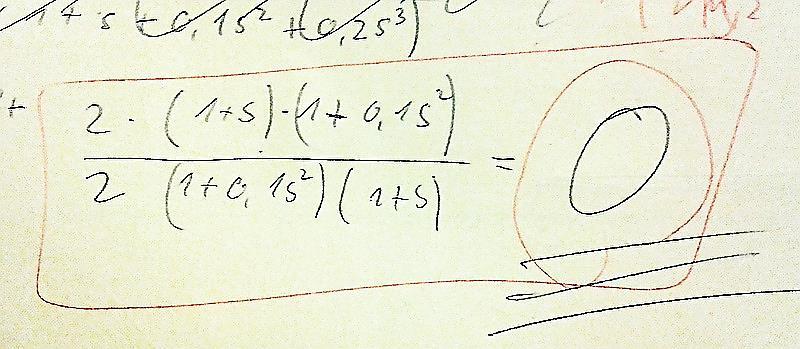 1+s(+0,1s²+(0,2s³)
2·(1+s)·(1+0,1s²)
2 (1+0,1s²)(1+s) = 0